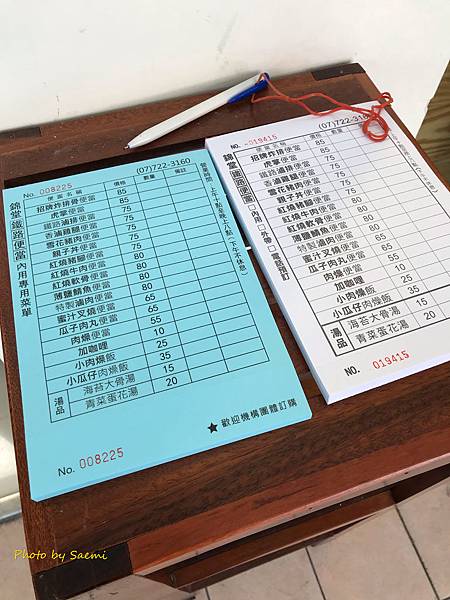 No. 008225
(07)722-3160
錦堂鐵路便當
內用專用菜單
便當名稱 價格 數量 備註
招牌炸排骨便當 85
虎掌便當 75
鐵路滷排便當 75
香滷雞腿便當 75
雪花豬肉便當 75
親子丼便當 75
紅燒豬腳便當 80
紅燒牛肉便當 80
紅燒軟骨便當 80
薄鹽鯖魚便當 80
特製滷肉便當 65
蜜汁叉燒便當 65
瓜子肉丸便當 55
肉燥便當 10
加咖哩 25
小肉燥飯 35
小瓜仔肉燥飯 15
湯品 海苔大骨湯 20
青菜蛋花湯
營業時間:上午十點至晚上八點(下午不休息)
No. 008225
★歡迎機構團體訂購
NO. 019415
(07)722-3160
錦堂鐵路便當
□內用 □外帶 □電話預訂
便當名稱 價格 數量
招牌炸排便當 85
虎掌便當 85
鐵路滷排便當 75
香滷雞腿便當 75
雪花豬肉便當 75
親子丼便當 75
紅燒豬腳便當 75
紅燒牛肉便當 80
紅燒軟骨便當 80
薄鹽鯖魚便當 80
特製滷肉便當 80
蜜汁叉燒便當 65
瓜子肉丸便當 65
肉燥便當 55
加咖哩 10
小肉燥飯 25
小瓜仔肉燥飯 35
湯品 海苔大骨湯 15
青菜蛋花湯 20
NO. 019415
Photo by Saemi